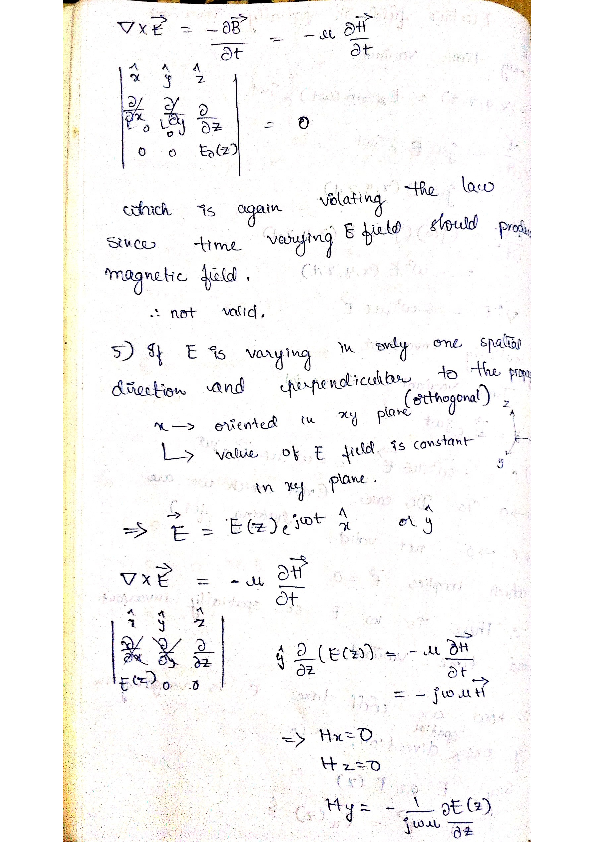 ∇×E⃗ = -∂B⃗/∂t = -μ ∂H⃗/∂t
| x̂ ŷ ẑ |
| ∂/∂x ∂/∂y ∂/∂z | = 0
↳0 ↳0
| 0 0 E₀(z) |
which is again violating the law
since time varying E field should produ
magnetic field.
∴ not valid.
5) If E is varying in only one spatial
direction and perpendicular to the prop
(orthogonal)
x → oriented in xy plane
z
↳ value of E field is constant
y
in xy plane.
⇒ E⃗ = E(z)e^{jωt} x̂ or ŷ
∇×E⃗ = -μ ∂H⃗/∂t
| x̂ ŷ ẑ |
| ∂/∂x ∂/∂y ∂/∂z | ŷ ∂/∂z (E(z)) = -μ ∂H⃗/∂t
| E(z) 0 0 | = -jωμH⃗
=> Hx=0
Hz=0
Hy = - 1/jωμ ∂E(z)/∂z